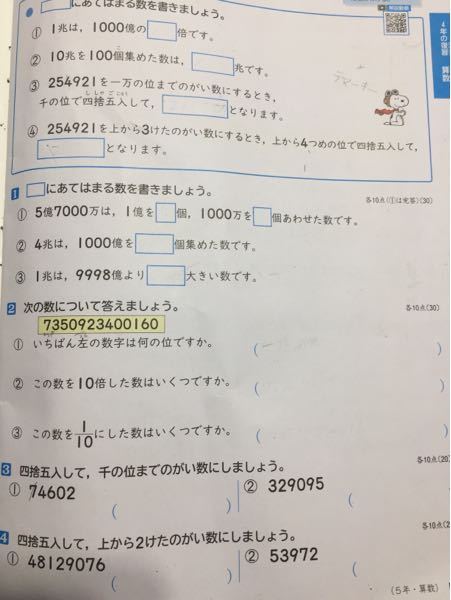 にあてはまる数を書きましょう。
① 1兆は，1000億の 倍です。
② 10兆を100個集めた数は， 兆です。
③ 254921を一万の位までのがい数にするとき，
千の位で四捨五入して， となります。
④ 254921を上から3けたのがい数にするとき，上から4つめの位で四捨五入して，
となります。
4年の復習 算数
1 にあてはまる数を書きましょう。
各10点(①は完答)(30)
① 5億7000万は，1億を 個，1000万を 個あわせた数です。
② 4兆は，1000億を 個集めた数です。
③ 1兆は，9998億より 大きい数です。
2 次の数について答えましょう。
各10点(30)
7350923400160
① いちばん左の数字は何の位ですか。 ( )
② この数を10倍した数はいくつですか。 ( )
③ この数を1/10にした数はいくつですか。 ( )
3 四捨五入して，千の位までのがい数にしましょう。
各10点(20)
① 74602 ( )
② 329095 ( )
4 四捨五入して，上から2けたのがい数にしましょう。
各10点(2
① 48129076 ( )
② 53972 ( )
(5年・算数)